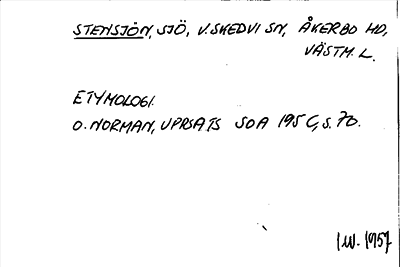 STENSJÖN, SJÖ, V. SKEDVI SN, ÅKERBO HD,
VÄSTM. L.
ETYMOLOGI.
O. NORMAN, UPPSATS SOA 195 C, S. 70.
1957